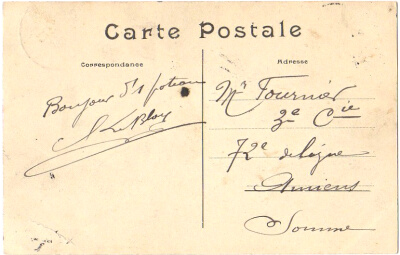 Carte Postale
Correspondance
Adresse
Bonjour d'1 poteau
Le Bloy
Mr Fournier
2e Cie
72e de ligne
Amiens
Somme